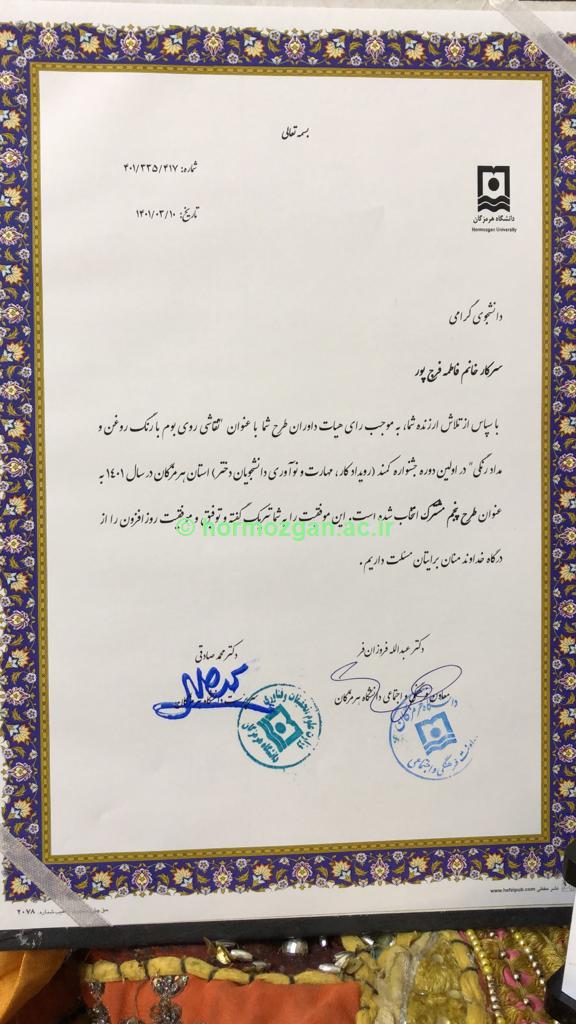 بسمه تعالی
شماره: ۴۰۱/۳۳۵/۴۱۷
تاریخ: ۱۴۰۱/۰۳/۱۰
دانشگاه هرمزگان
Hormozgan University
دانشجوی گرامی
سرکار خانم فاطمه فرج پور
با سپاس از تلاش ارزنده شما، به موجب رای هیات داوران طرح شما با عنوان "نقاشی روی بوم با رنگ روغن و
مداد رنگی" در اولین دوره جشنواره کمند (رویداد کار، مهارت و نوآوری دانشجویان دختر) استان هرمزگان در سال ۱۴۰۱ به
عنوان طرح پنجم مشترک انتخاب شده است. این موفقیت را به شما تبریک گفته و توفیق و موفقیت روز افزون را از
© hormozgan.ac.ir
درگاه خداوند منان برایتان مسئلت داریم.
دکتر عبدالله فروزان فر
دکتر محمد صادقی
معاون فرهنگی و اجتماعی دانشگاه هرمزگان
دانشگاه هرمزگان
معاونت فرهنگی و اجتماعی
وزارت علوم تحقیقات و فناوری
دانشگاه هرمزگان
www.hafezipub.com
۲۰۷۸